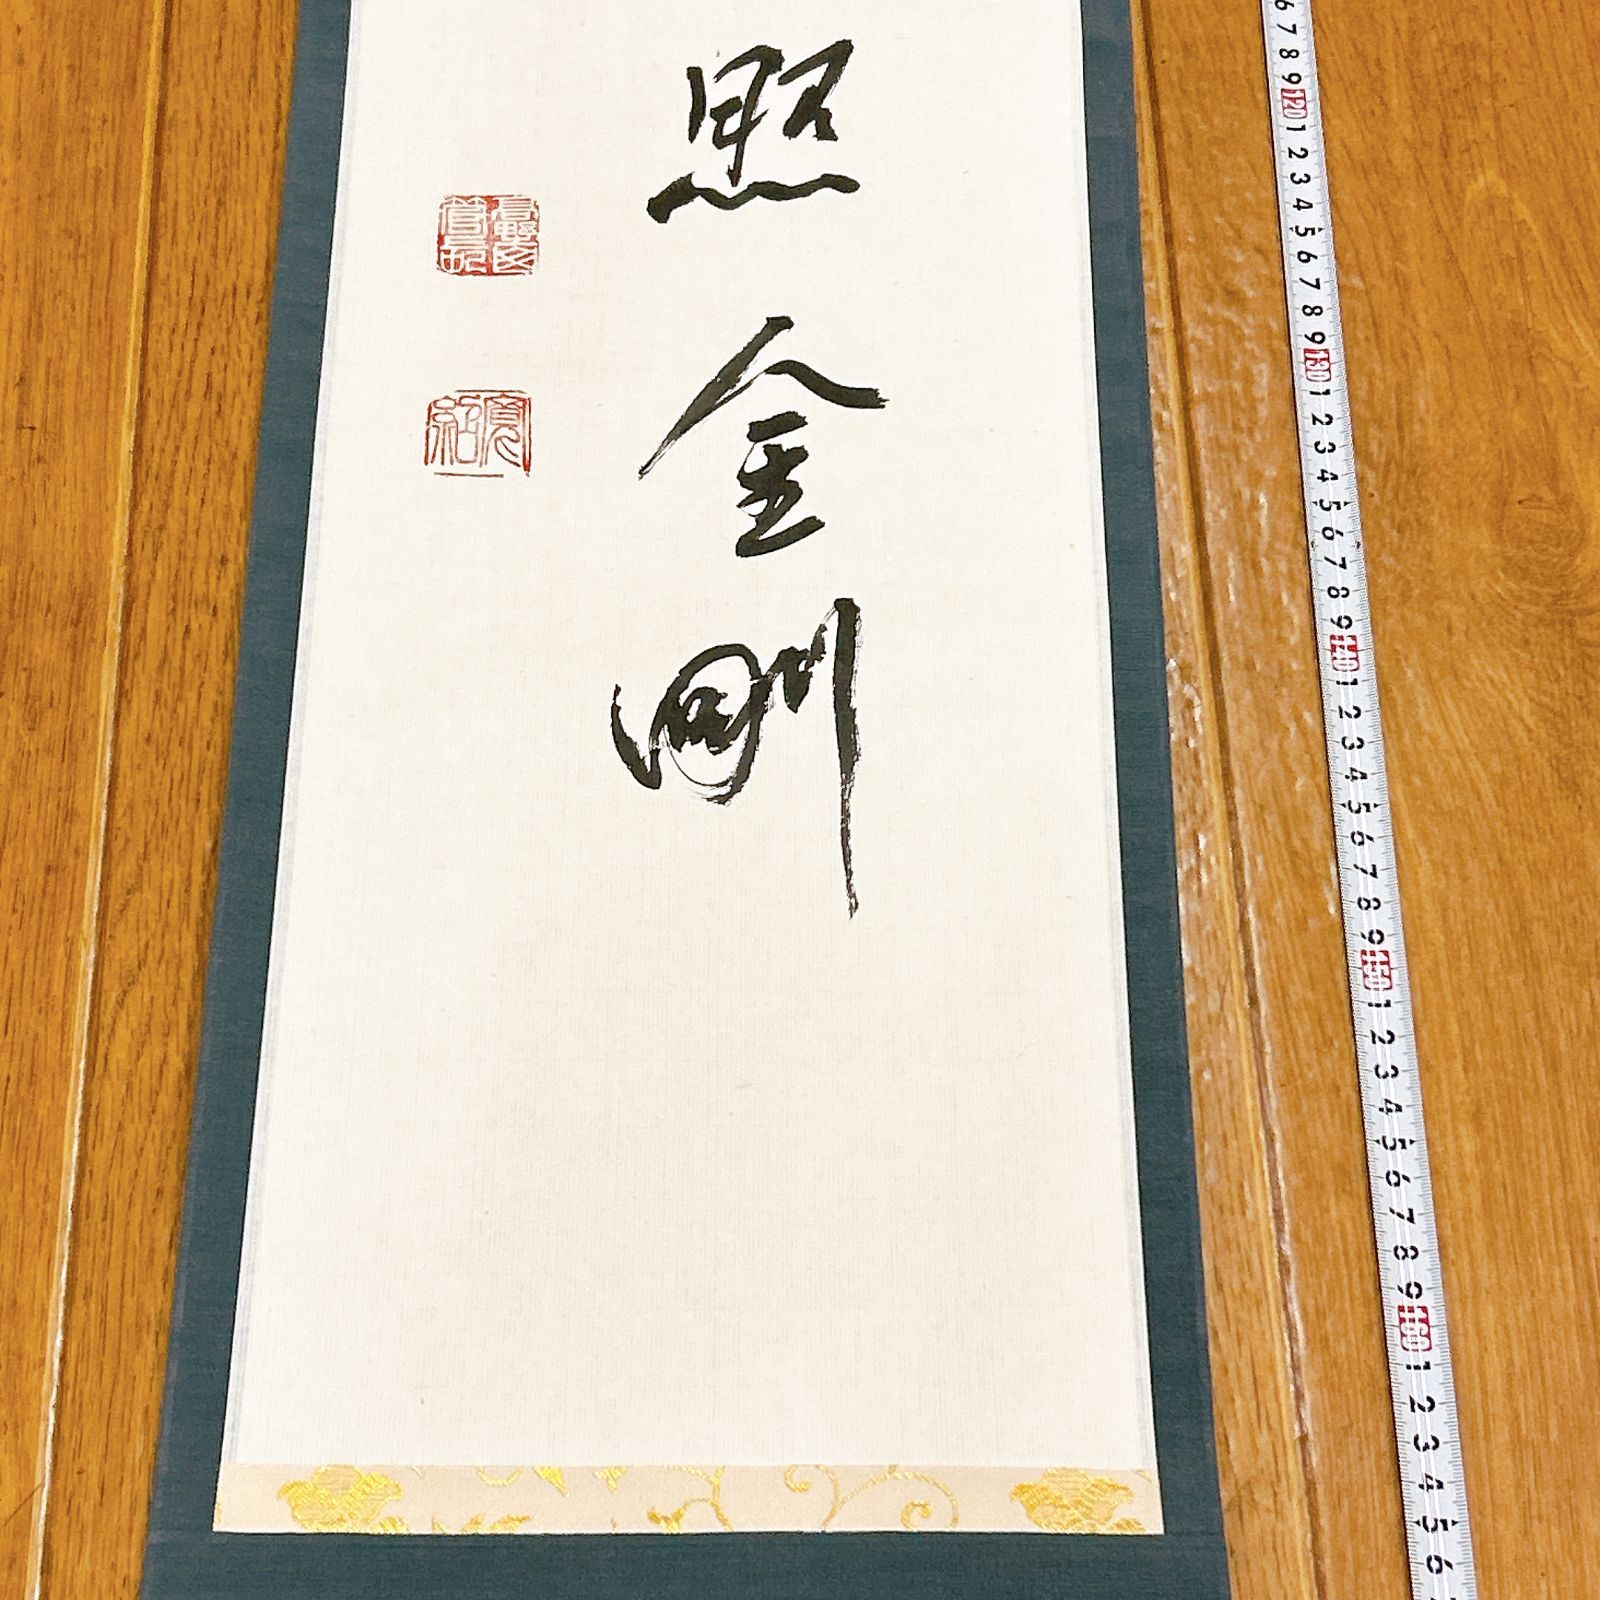 照金剛
寛紹
6 7 8 9 120 1 2 3 4 5 6 7 8 9 130 1 2 3 4 5 6 7 8 9 140 1 2 3 4 5 6 7 8 9 150 1 2 3 4 5 6 7 8 9 160 1 2 3 4 5 6